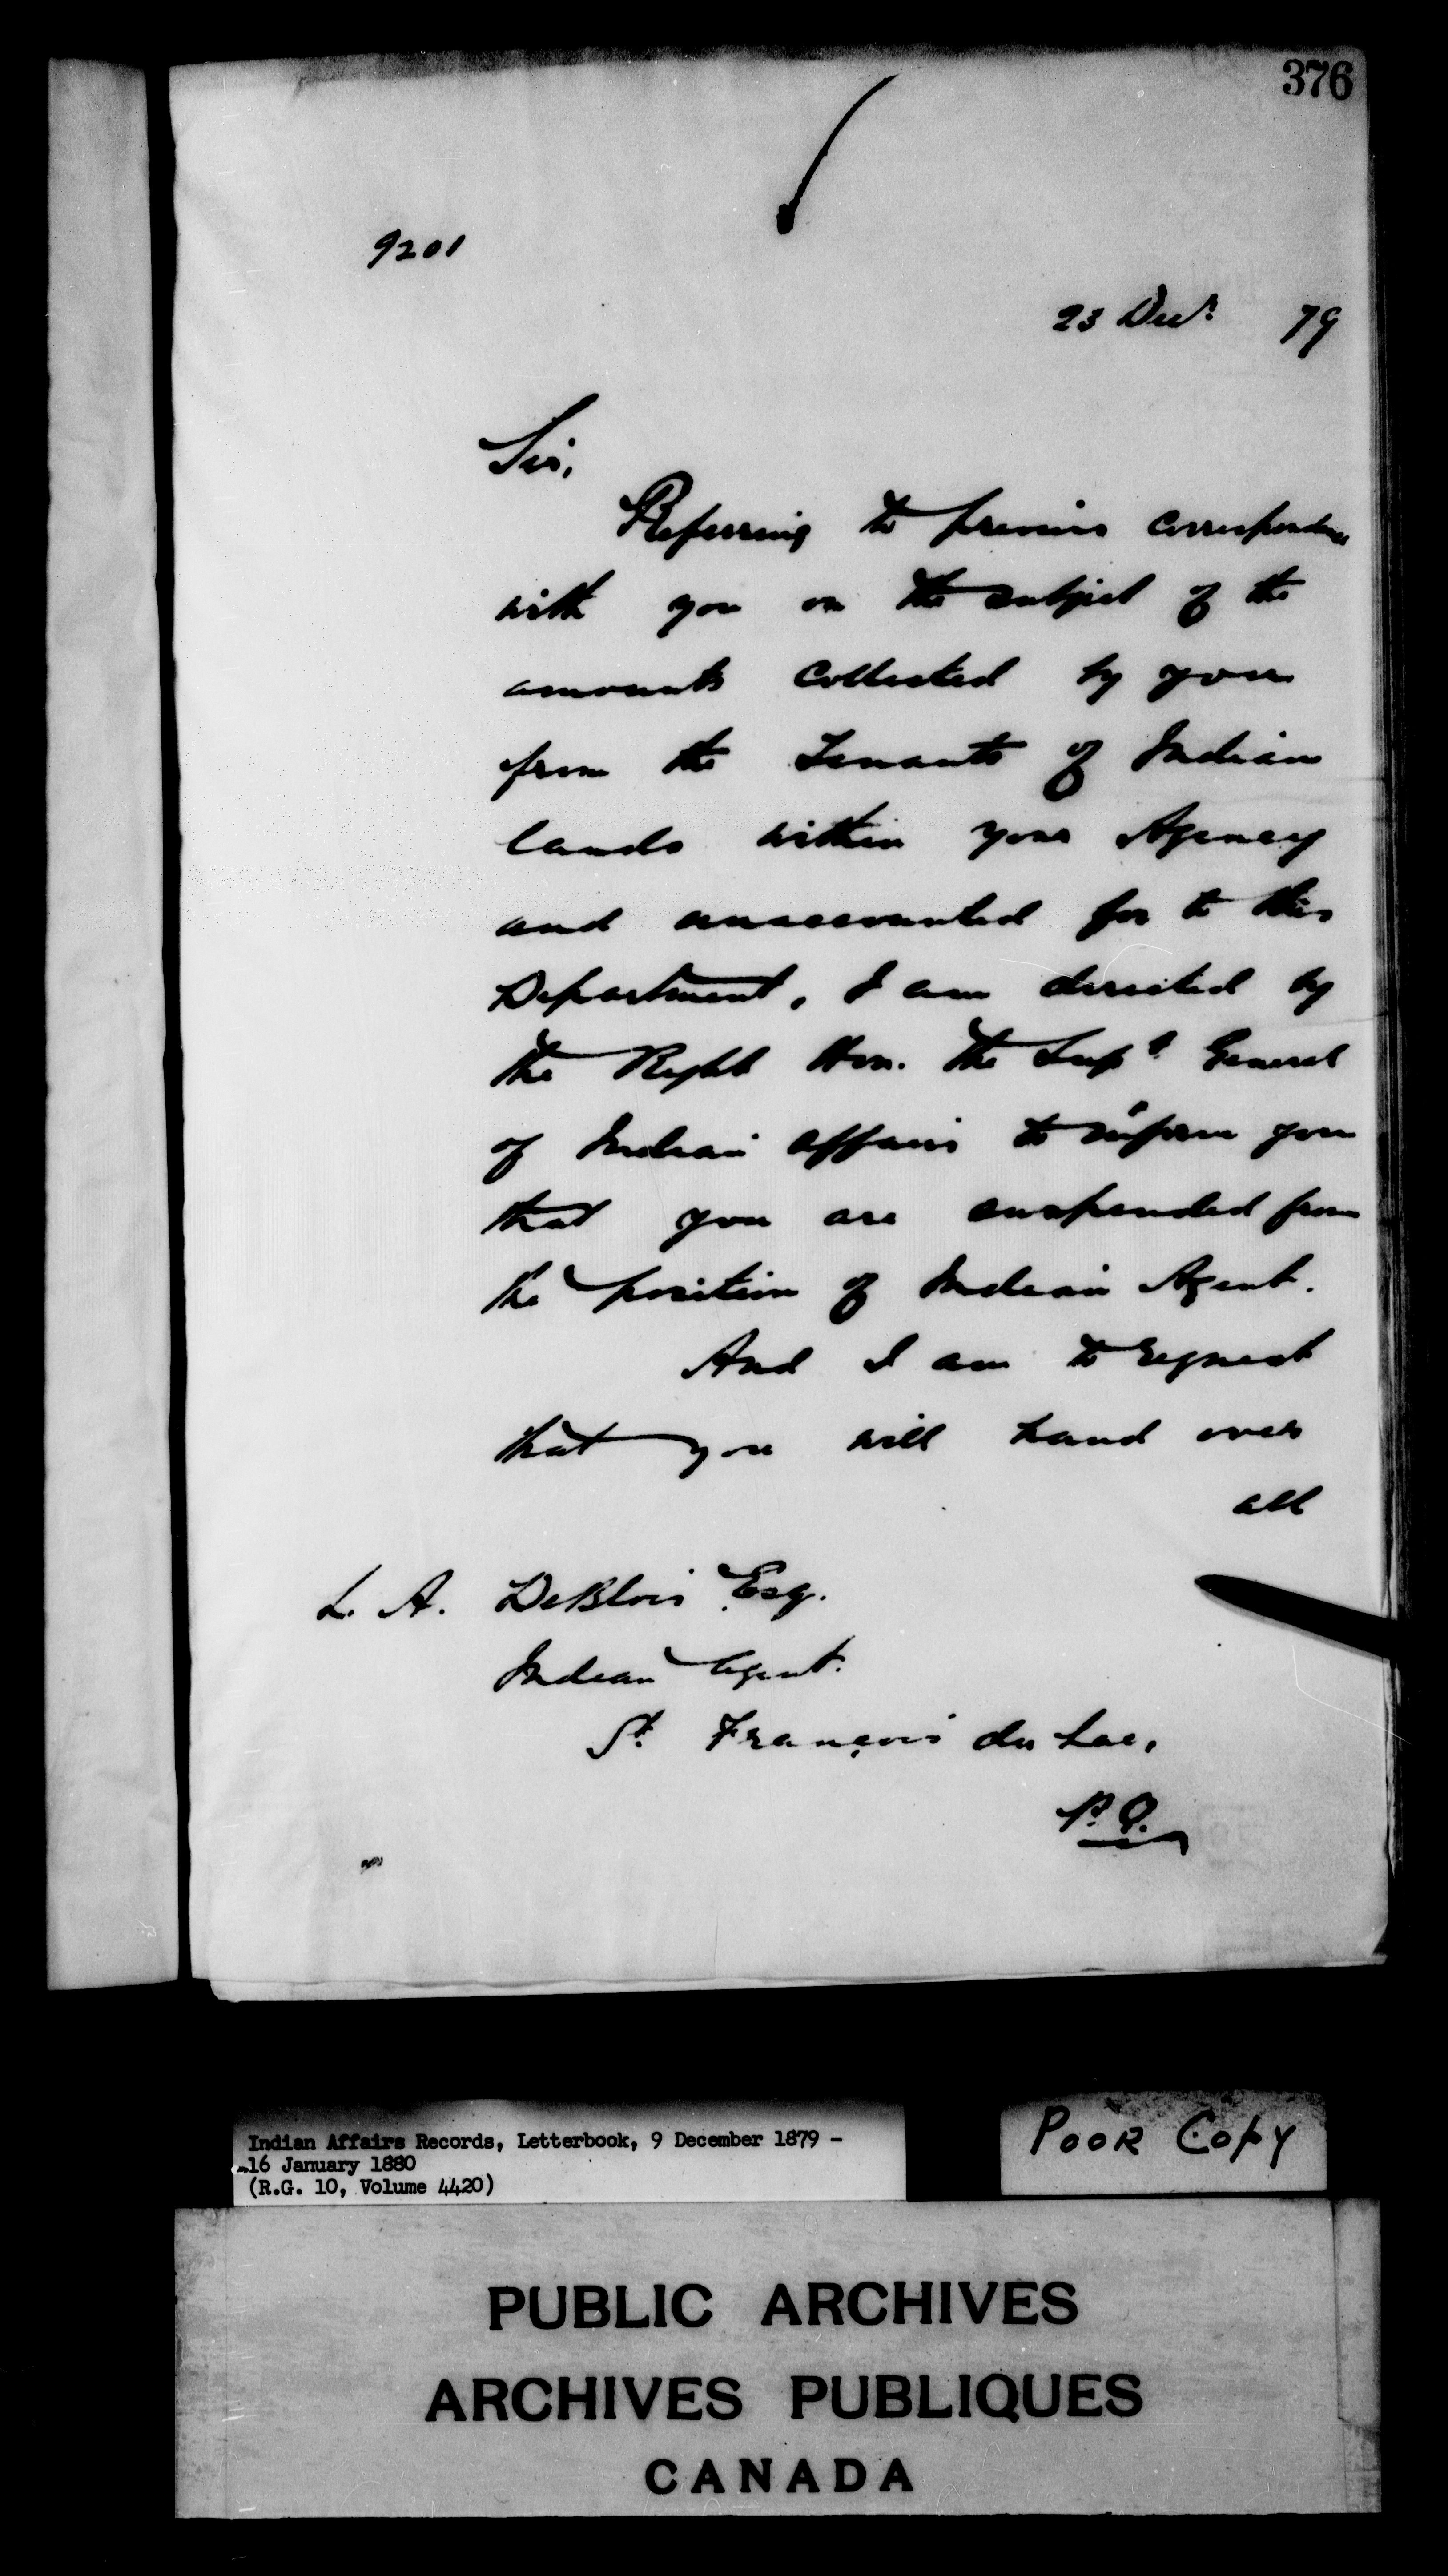 376
9201
23 Decr. 79
Sir,
Referring to previous correspondence
with you on the subject of the
amounts collected by you
from the Tenants of Indian
lands within your Agency
and unaccounted for to this
Department, I am directed by
the Right Hon. the Supt. General
of Indian affairs to inform you
that you are suspended from
the position of Indian Agent.
And I am to request
that you will hand over
all
L. A. DeBlois Esq.
Indian Agent.
St. François du Lac,
P.Q.
Indian Affairs Records, Letterbook, 9 December 1879 -
16 January 1880
(R.G. 10, Volume 4420)
POOR COPY
PUBLIC ARCHIVES
ARCHIVES PUBLIQUES
CANADA